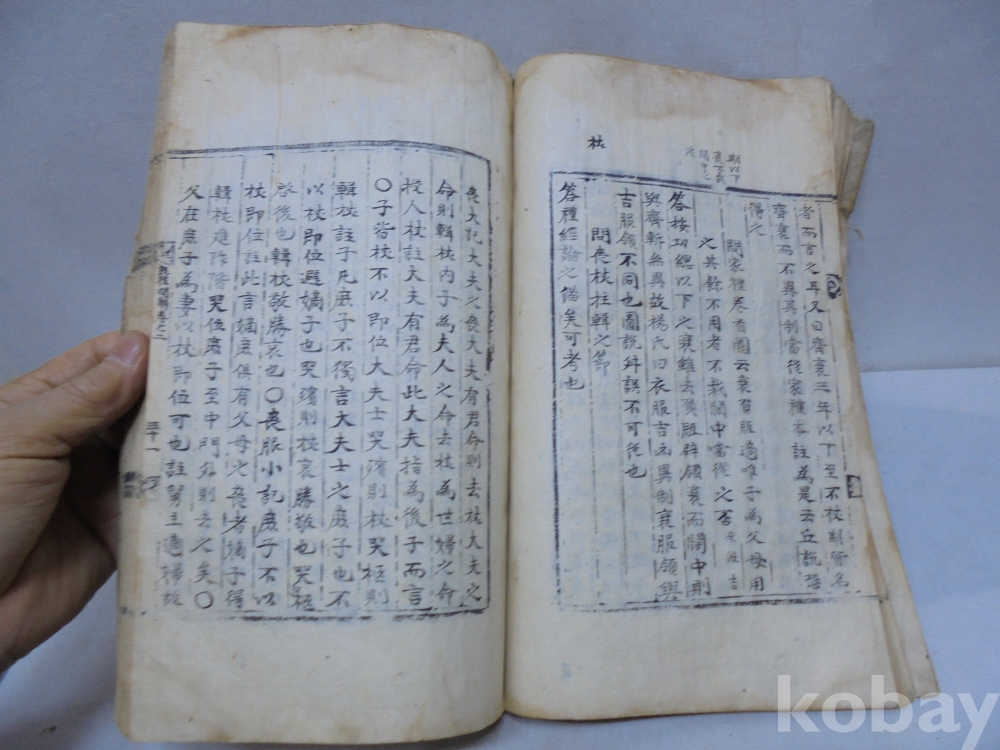 期以下
者而言之耳又曰齊衰三年以下至不杖期皆名
齊衰而不異其制當從家禮本註為是云丘說恐
得之
問家禮卷首圖云衰負版適唯子為父母用
之其餘不用者不載頭中當從之否
答按功緦以下之衰雖去負版辟領衰而闊中則
與齊斬無異故楊氏曰衣服吉凶異制衰服領與
吉服領不同也圖說舛誤不可從也
杖
問喪杖拄輯之節
答禮經論之備矣可考也
喪大記大夫之喪大夫有君命則去杖大夫之
命則輯杖內子為夫人之命去杖為世婦之命
授人杖註大夫有君命此大夫指為後子而言
○子皆杖不以即位大夫士哭殯則杖哭柩則
輯杖註子凡庶子不獨言大夫士之庶子也不
以杖即位避嫡子也哭殯則杖哀勝敬也哭柩
啓後也輯杖敬勝哀也○喪服小記庶子不以
杖即位註此言嫡庶俱有父母之喪者嫡子得
輯杖進阼階哭位庶子至中門外則去之矣○
父在庶子為妻以杖即位可也註舅主適婦故
卷之二
三十一
kobay